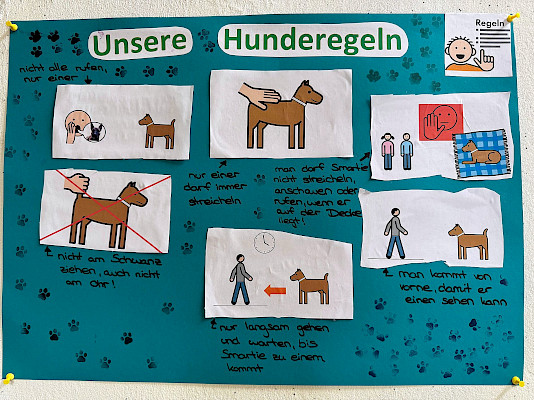 Unsere Hunderegeln
Regeln
nicht alle rufen,
nur einer
nur einer
darf immer
streicheln
man darf Smartie
nicht streicheln,
anschauen oder
rufen, wenn er
auf der Decke
liegt!
nicht am Schwanz
ziehen, auch nicht
am Ohr!
man kommt von
vorne, damit er
einen sehen kann
nur langsam gehen
und warten, bis
Smartie zu einem
kommt